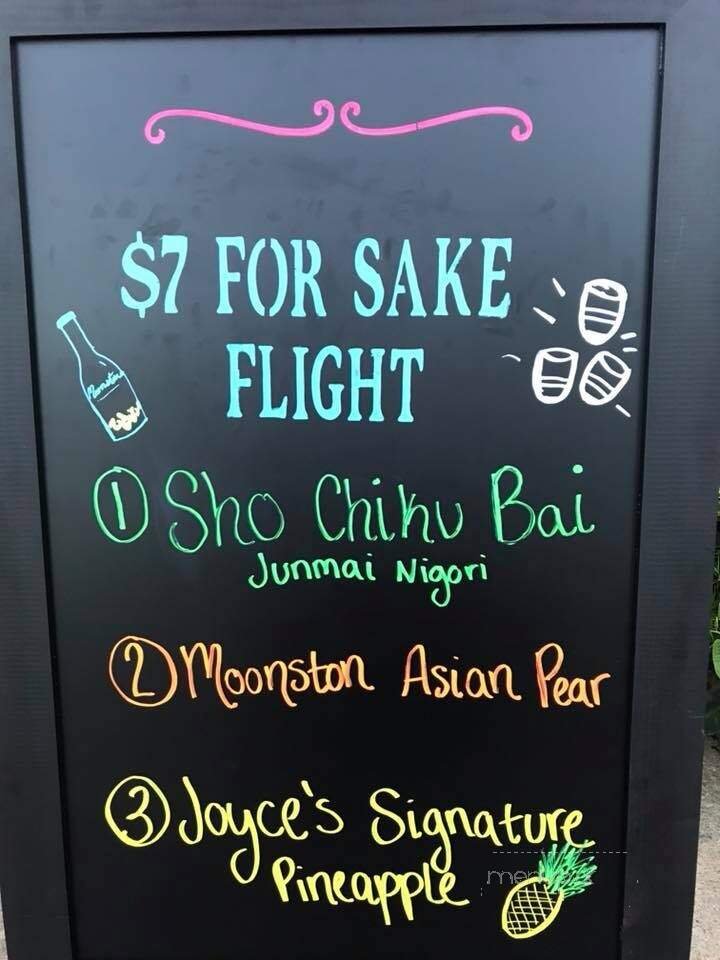 $7 FOR SAKE
FLIGHT
① Sho Chiku Bai
Junmai Nigori
② Moonston Asian Pear
③ Joyce's Signature
Pineapple